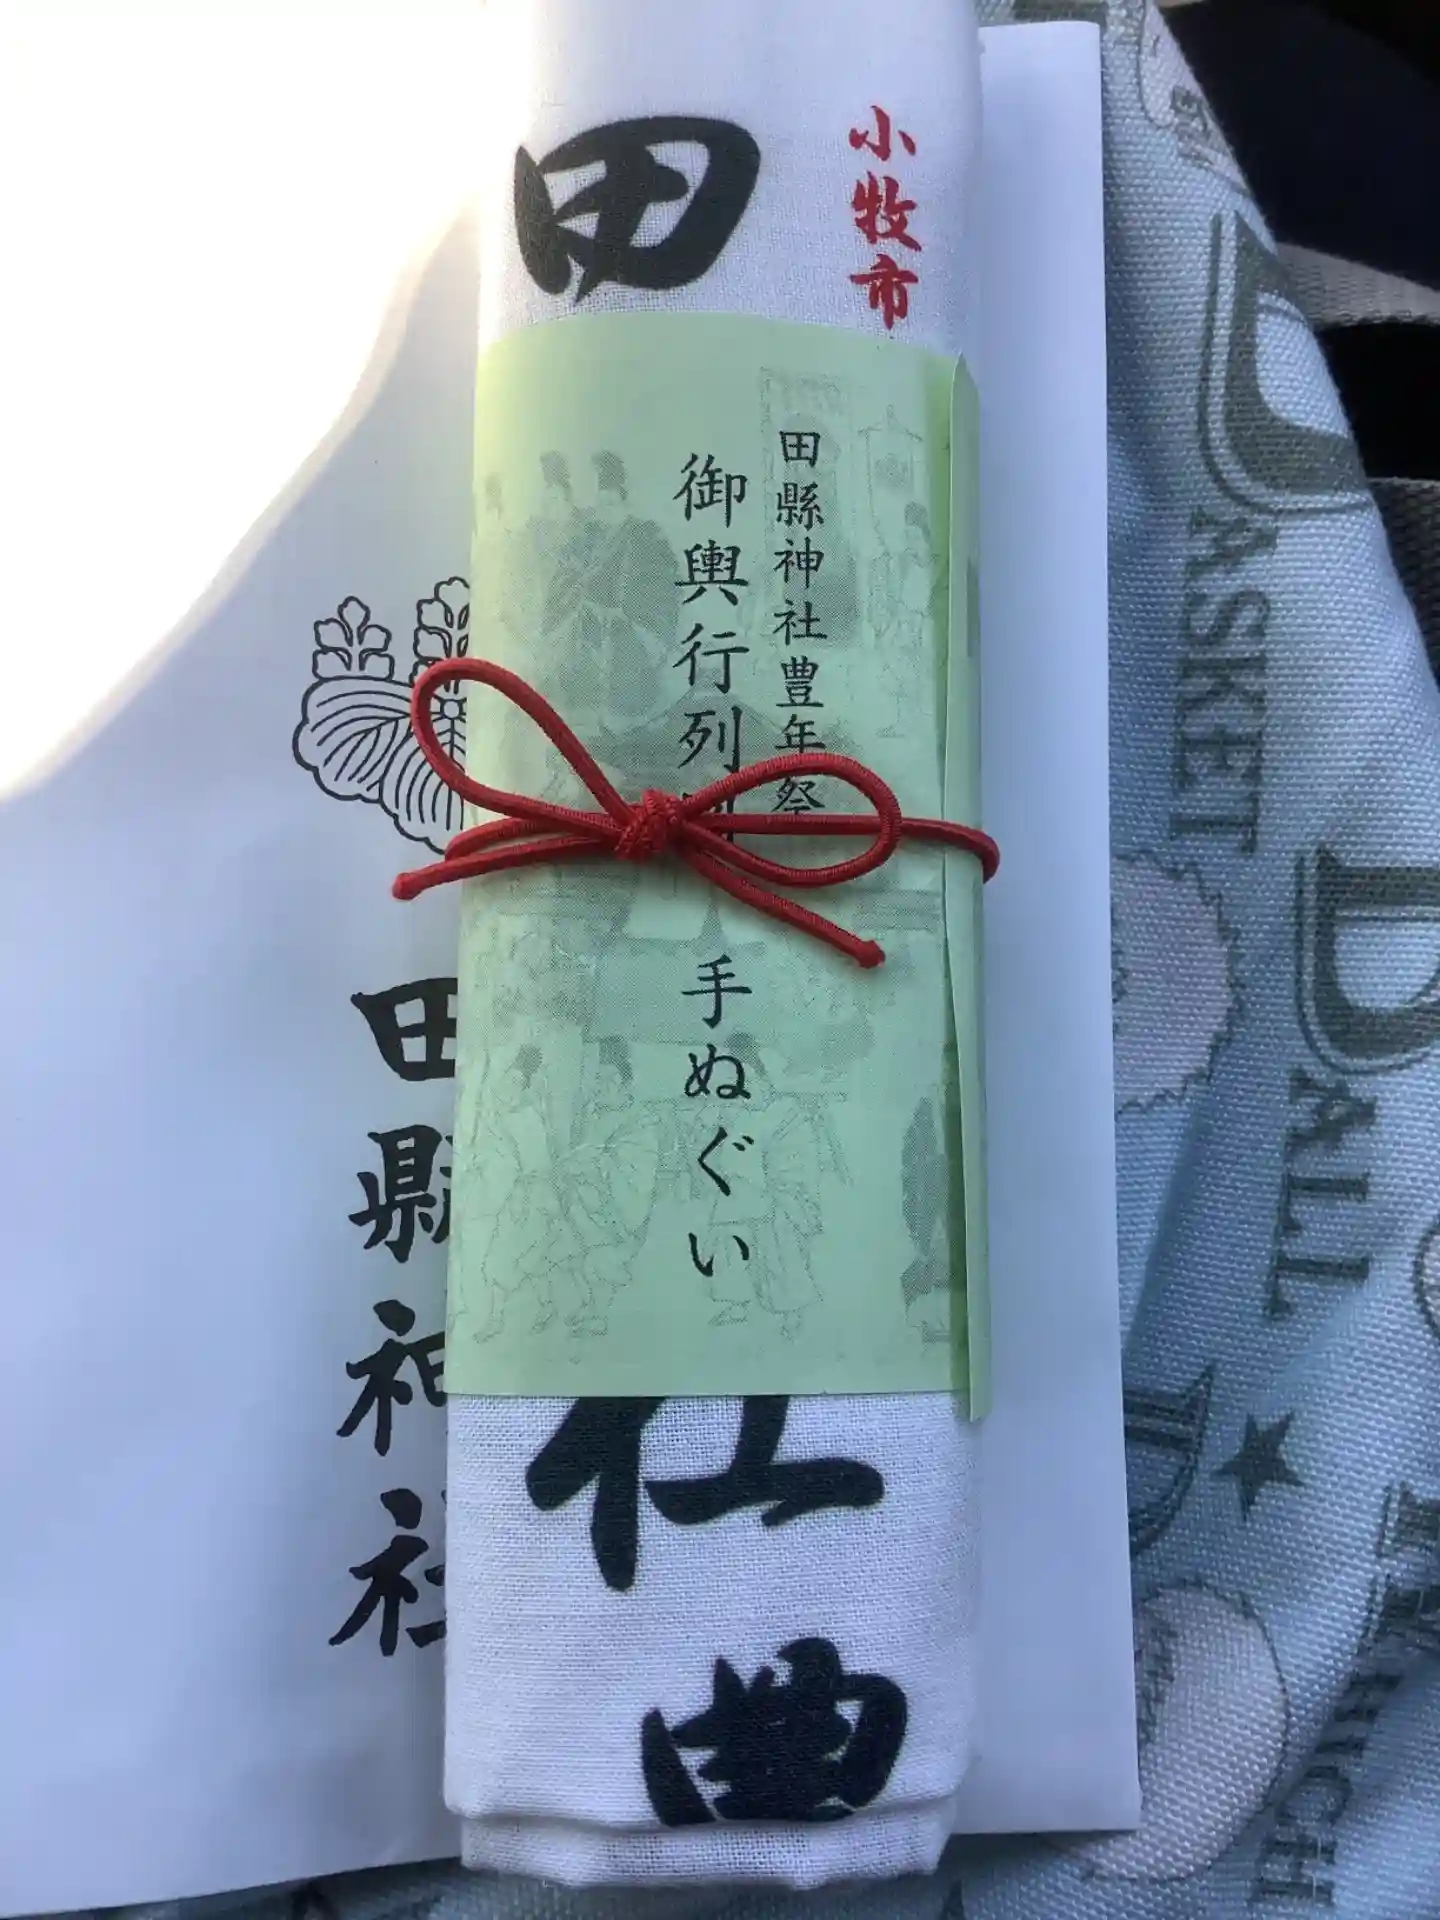 小牧市
田
田縣神社豊年祭
御輿行列
手ぬぐい
社
豊
田縣神社
DASKET
DALL